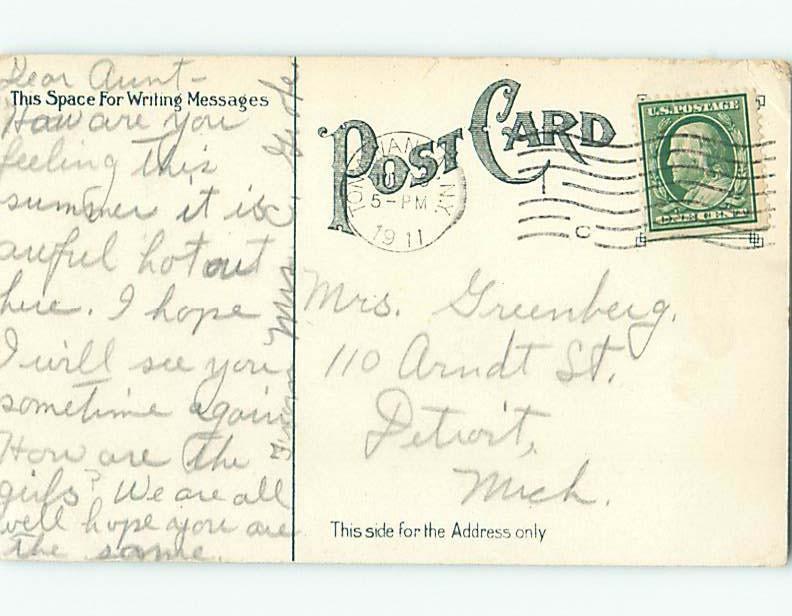 Dear Aunt -
This Space For Writing Messages
How are you
feeling this
summer it is
awful hot out
here. I hope
I will see you
sometime again
How are the
girls? We are all
well hope you are
the same.
From Mrs
POST CARD
N.Y.
5-PM
1911
C
U.S. POSTAGE
ONE CENT
Mrs. Greenberg.
110 Arndt St.
Detroit,
Mich.
This side for the Address only